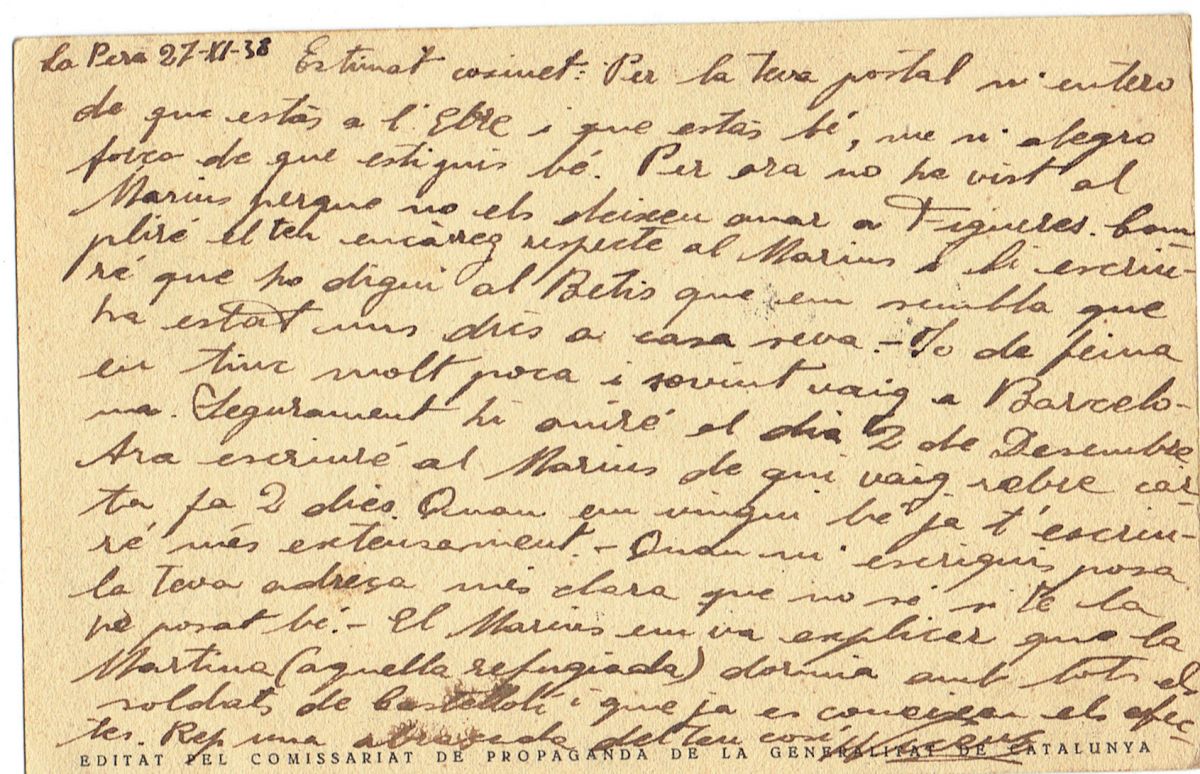 La Pera 27-XI-38 Estimat cosinet: Per la teva postal m'entero
de que estàs a l'Ebre i que estàs bé, me n'alegro
força de que estiguis bé. Per ara no he vist al
Marius perque no els deixen anar a Figueres. Com-
pliré el teu encàrreg respecte al Marius i li escriu-
ré que ho digui al Betis que em sembla que
ha estat uns dies a casa seva. - Jo de feina
en tinc molt poca i sovint vaig a Barcelo-
na. Segurament hi aniré el dia 2 de Desembre
Ara escriuré al Marius de qui vaig rebre car-
ta fa 2 dies. Quan em vingui bé ja t'escriu-
ré més extensament. - Quan m'escriguis posa
la teva adreça més clara que no sé si te la
he posat bé. - El Marius em va explicar que la
Martina (aquella refugiada) dormia amb tots els
soldats de Castelloli i que ja es coneixen els efec-
tes. Rep una abraçada del teu cosí Vicenç
EDITAT PEL COMISSARIAT DE PROPAGANDA DE LA GENERALITAT DE CATALUNYA